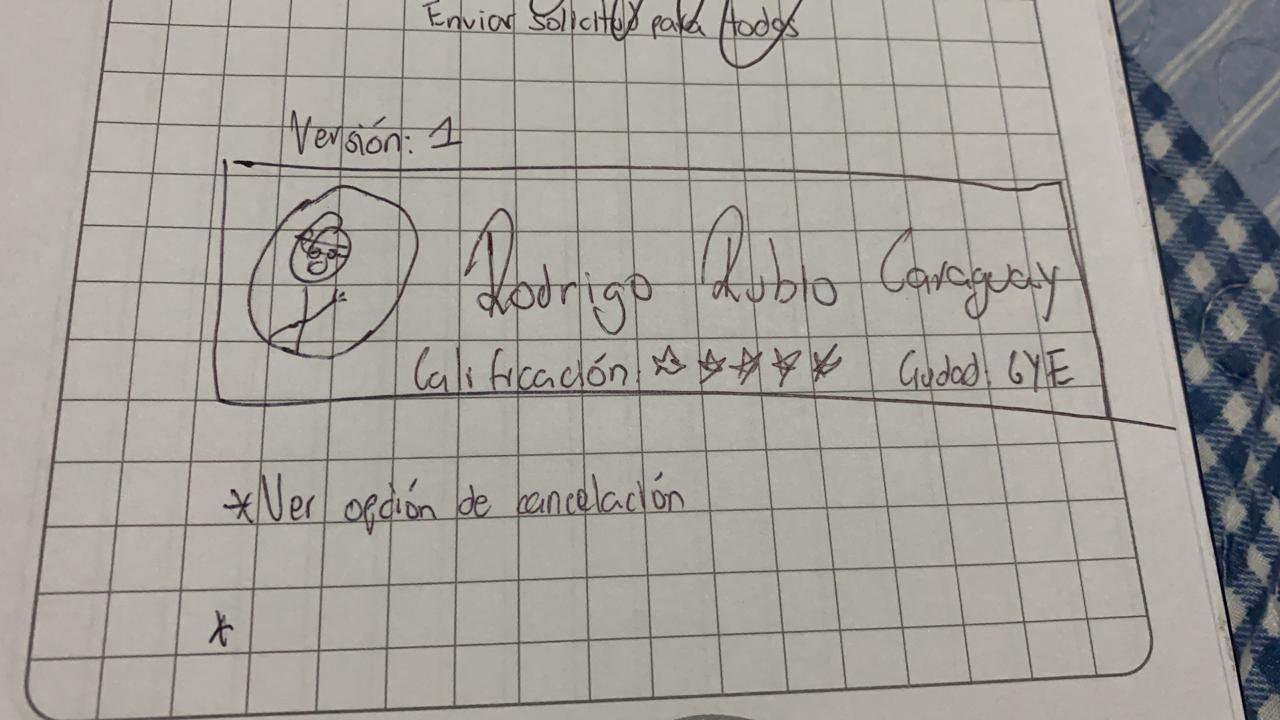 Enviar solicitud para todos
Versión: 1
Rodrigo Rubio Caraguay
Calificación ☆ ☆ ☆ ☆ ☆ Ciudad GYE
* Ver opción de cancelación
*